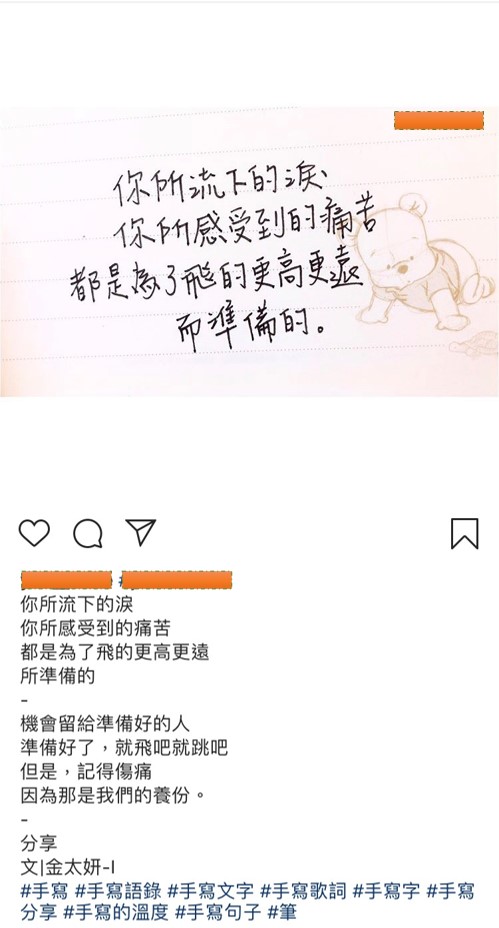 你所流下的淚、
你所感受到的痛苦
都是為了飛的更高更遠
而準備的。
你所流下的淚
你所感受到的痛苦
都是為了飛的更高更遠
所準備的
-
機會留給準備好的人
準備好了，就飛吧就跳吧
但是，記得傷痛
因為那是我們的養份。
-
分享
文|金太妍-I
#手寫 #手寫語錄 #手寫文字 #手寫歌詞 #手寫字 #手寫
分享 #手寫的溫度 #手寫句子 #筆